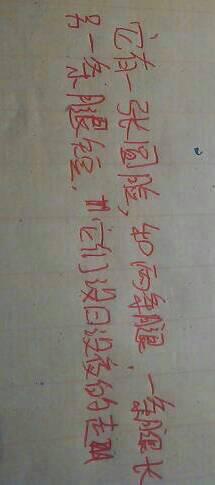 它有一张圆脸，如两条腿 一条腿长
另一条腿短. 它们没日没夜的走